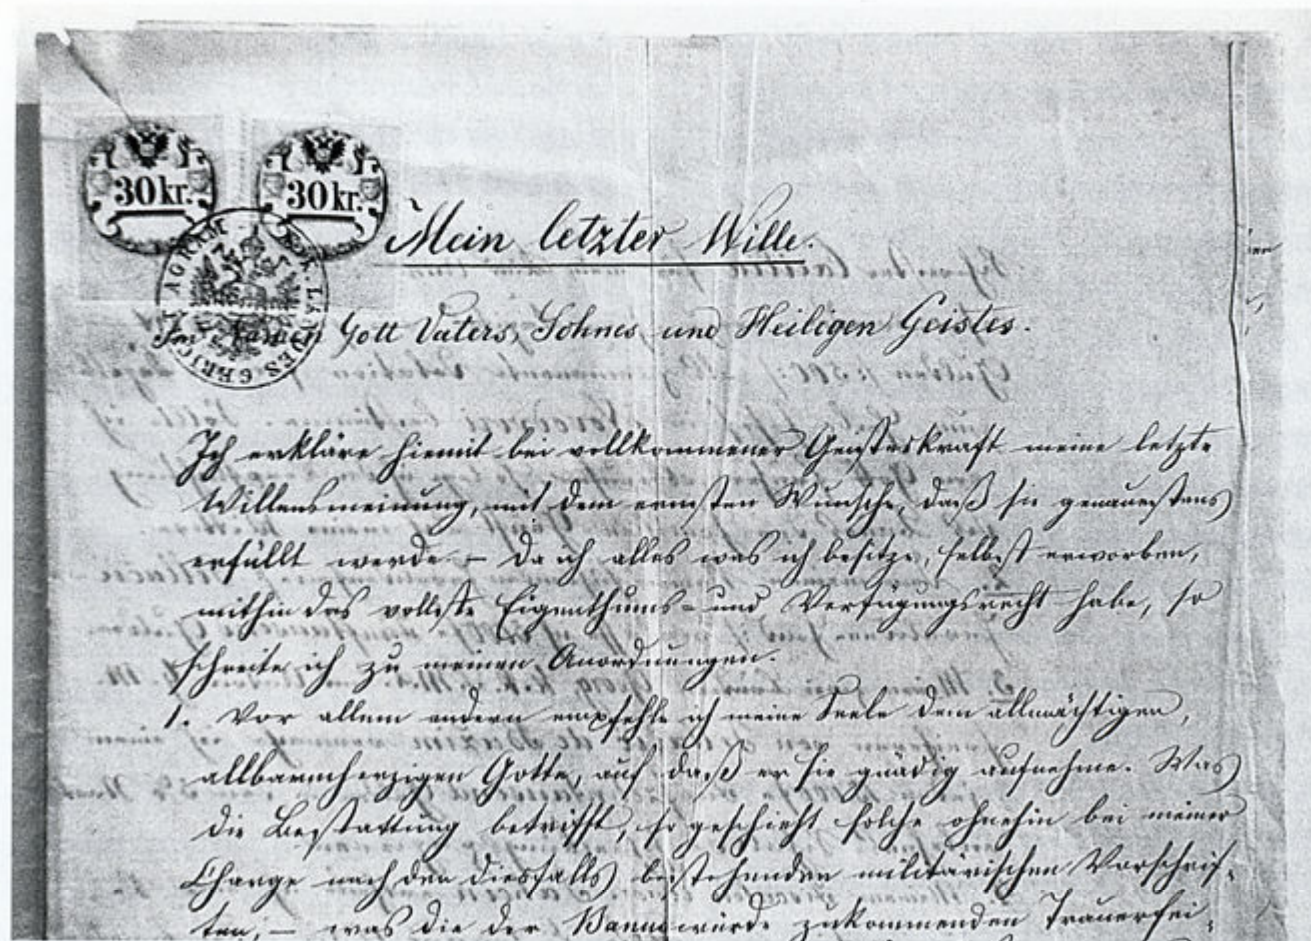 30 kr. 30 kr.
K.K. LANDESGERICHT AGRAM
Mein letzter Wille.
Im Namen Gott Vaters, Sohnes, und Heiligen Geistes.
Ich erkläre hiemit bei vollkommener Geisteskraft meine letzte
Willensmeinung, mit dem ernsten Wunsche, daß sie genauestens
erfüllt werde. – Da ich alles was ich besitze, selbst erworben,
mithin das vollste Eigenthums- und Verfügungsrecht habe, so
schreite ich zu meinen Anordnungen.
1. Vor allem andern empfehle ich meine Seele dem allmächtigen,
allbarmherzigen Gotte, auf daß er sie gnädig aufnehme. Was
die Bestattung betrifft, so geschieht solche ohnehin bei meiner
Charge nach den diesfalls bestehenden militärischen Vorschrif-
ten, – was die der Banuswürde zukommenden Trauerfei-